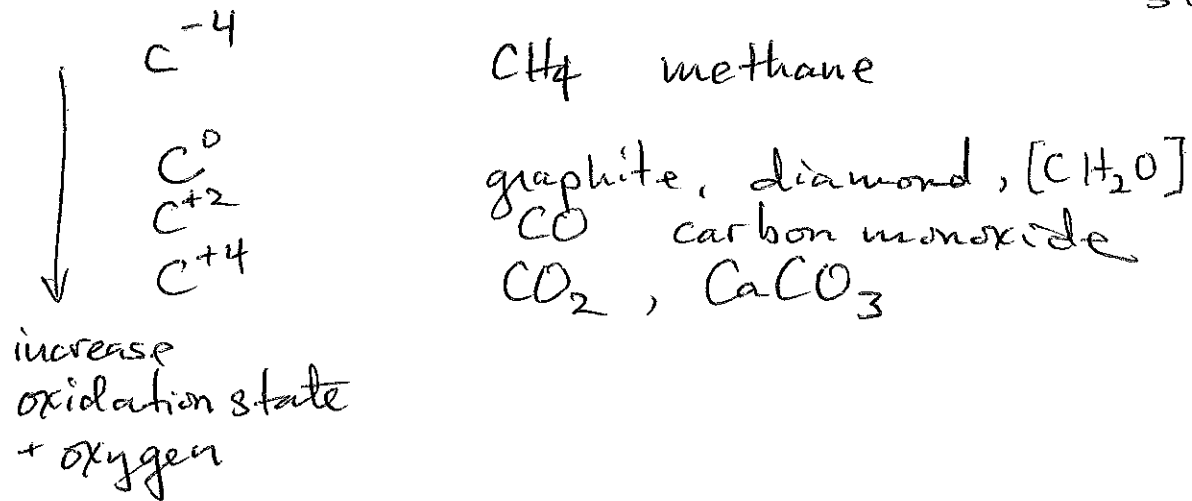 C⁻⁴ CH₄ methane
C⁰ graphite, diamond, [CH₂O]
C⁺² CO carbon monoxide
C⁺⁴ CO₂, CaCO₃
increase
oxidation state
+ oxygen